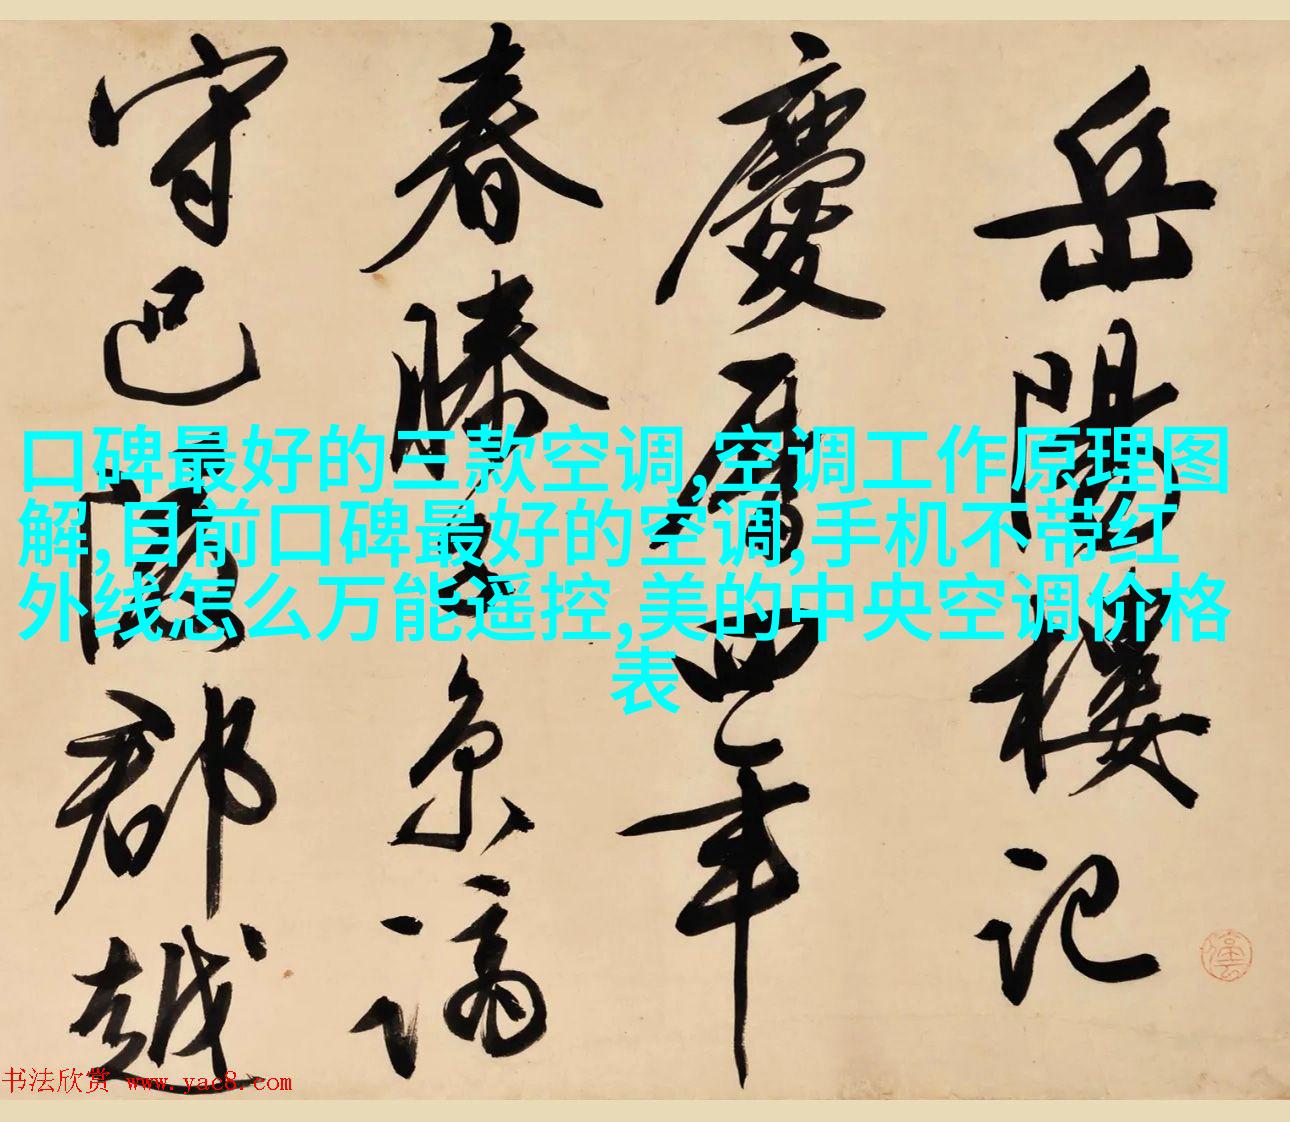 岳陽樓記
慶曆四年
春滕子京謫
守巴陵郡越
口碑最好的三款空调,空调工作原理图
解,目前口碑最好的空调,手机不带红
外线怎么万能遥控,美的中央空调价格
表
书法欣赏 www.yac8.com